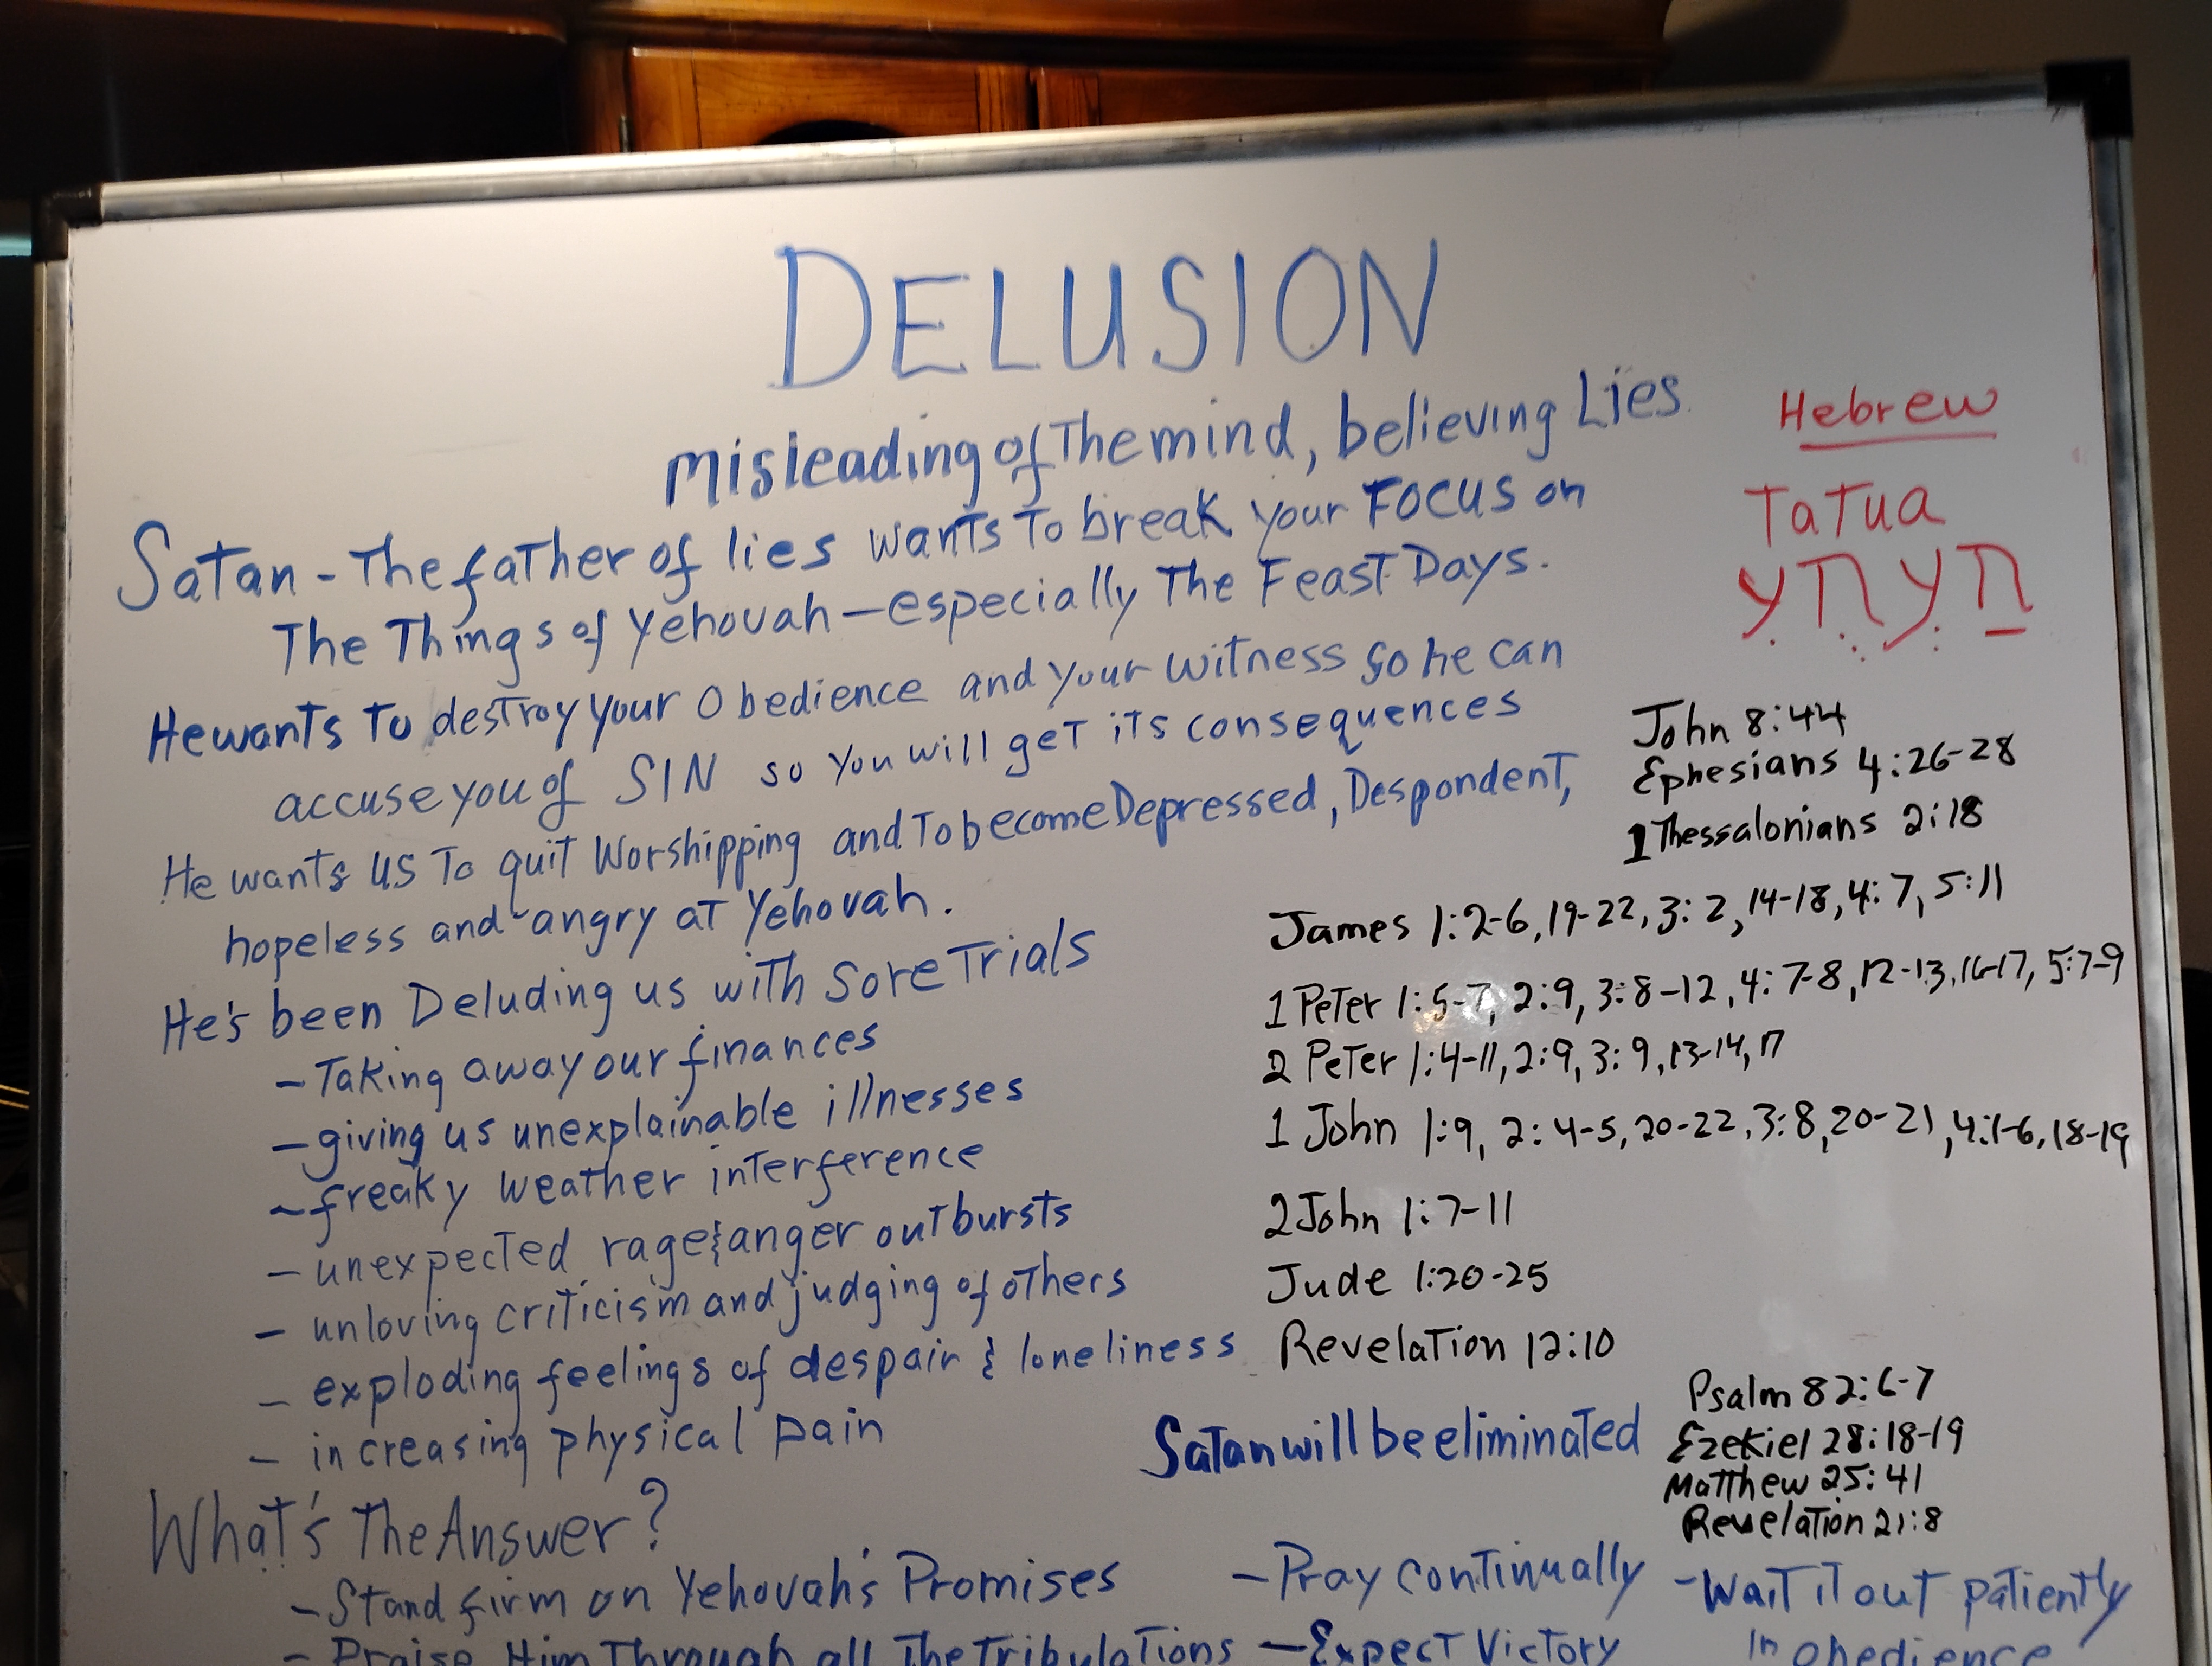 DELUSION
Misleading of The mind, believing Lies
Satan - The father of lies wants To break your FOCUS on
The Things of Yehovah - especially The Feast Days.
He wants To destroy your Obedience and your witness so he can
accuse you of SIN so you will get its consequences
He wants us To quit Worshipping and To become Depressed, Despondent,
hopeless and angry at Yehovah.
He's been Deluding us with Sore Trials
- Taking away our finances
- giving us unexplainable illnesses
- freaky weather interference
- unexpected rage & anger outbursts
- unloving criticism and judging of others
- exploding feelings of despair & loneliness
- increasing physical pain
Hebrew
TaTua
עתעת
John 8:44
Ephesians 4:26-28
1 Thessalonians 2:18
James 1:2-6, 19-22, 3:2, 14-18, 4:7, 5:11
1 Peter 1:5-7, 2:9, 3:8-12, 4:7-8, 12-13, 16-17, 5:7-9
2 Peter 1:4-11, 2:9, 3:9, 13-14, 17
1 John 1:9, 2:4-5, 20-22, 3:8, 20-21, 4:1-6, 18-19
2 John 1:7-11
Jude 1:20-25
Revelation 12:10
Satan will be eliminated
Psalm 82:6-7
Ezekiel 28:18-19
Matthew 25:41
Revelation 21:8
What's The Answer?
- Stand firm on Yehovah's Promises
- Praise Him Through all The Tribulations
- Pray continually
- Expect Victory
- Wait it out patiently
In obedience